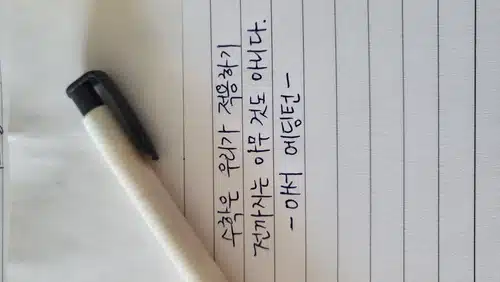 수학은 우리가 적용하기
전까지는 아무 것도 아니다.
- 아서 에딩턴 -